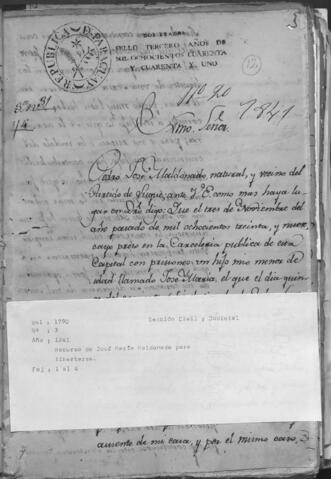 3
REPUBLICA D PARAGUAY
DOS REALES
SELLO TERCERO AÑOS DE
MIL OCHOCIENTOS CUARENTA
Y CUARENTA Y UNO
12
Nº 20
1841
Exmo. Señor
Pedro José Maldonado natural, y vecino del
Partido de Luque, ante V.E. como mas haya lu-
gar en dro. digo: Que el tres de Noviembre del
año pasado de mil ochocientos treinta, y nueve
cayo preso en la Carceleria publica de esta
Capital con prisiones un hijo mio menor de
edad llamado José Maria, el que el dia quin
Vol : 1790 Sección Civil y Judicial
Nº : 3
Año : 1841
Recurso de José María Maldonado para
libertarse.
Foj : 1 al 4
aumento de mi casa, y por el mismo caso,